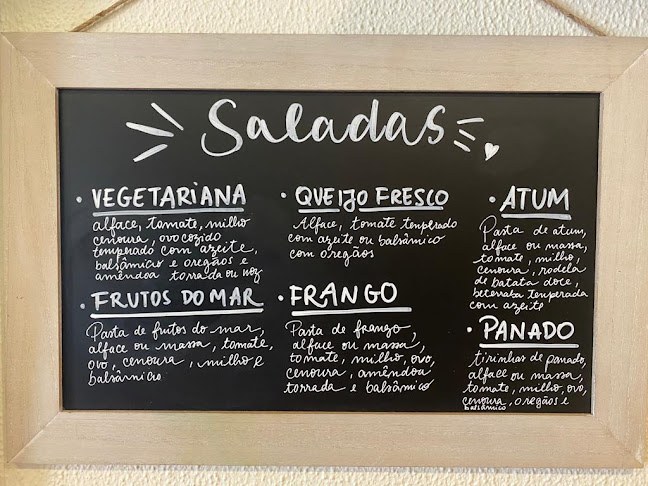 Saladas
• VEGETARIANA
alface, tomate, milho
cenoura, ovo cozido
temperado com azeite,
balsâmico e oregãos e
amêndoa torrada ou noz
• QUEIJO FRESCO
Alface, tomate temperado
com azeite ou balsâmico
com oregãos
• ATUM
Pasta de atum,
alface ou massa,
tomate, milho,
cenoura, rodela
de batata doce,
beterraba temperada
com azeite
• FRUTOS DO MAR
Pasta de frutos do mar,
alface ou massa, tomate,
ovo, cenoura, milho e
balsâmico
• FRANGO
Pasta de frango,
alface ou massa,
tomate, milho, ovo,
cenoura, amêndoa
torrada e balsâmico
• PANADO
tirinhas de panado,
alface ou massa,
tomate, milho, ovo,
cenoura, oregãos e
balsâmico